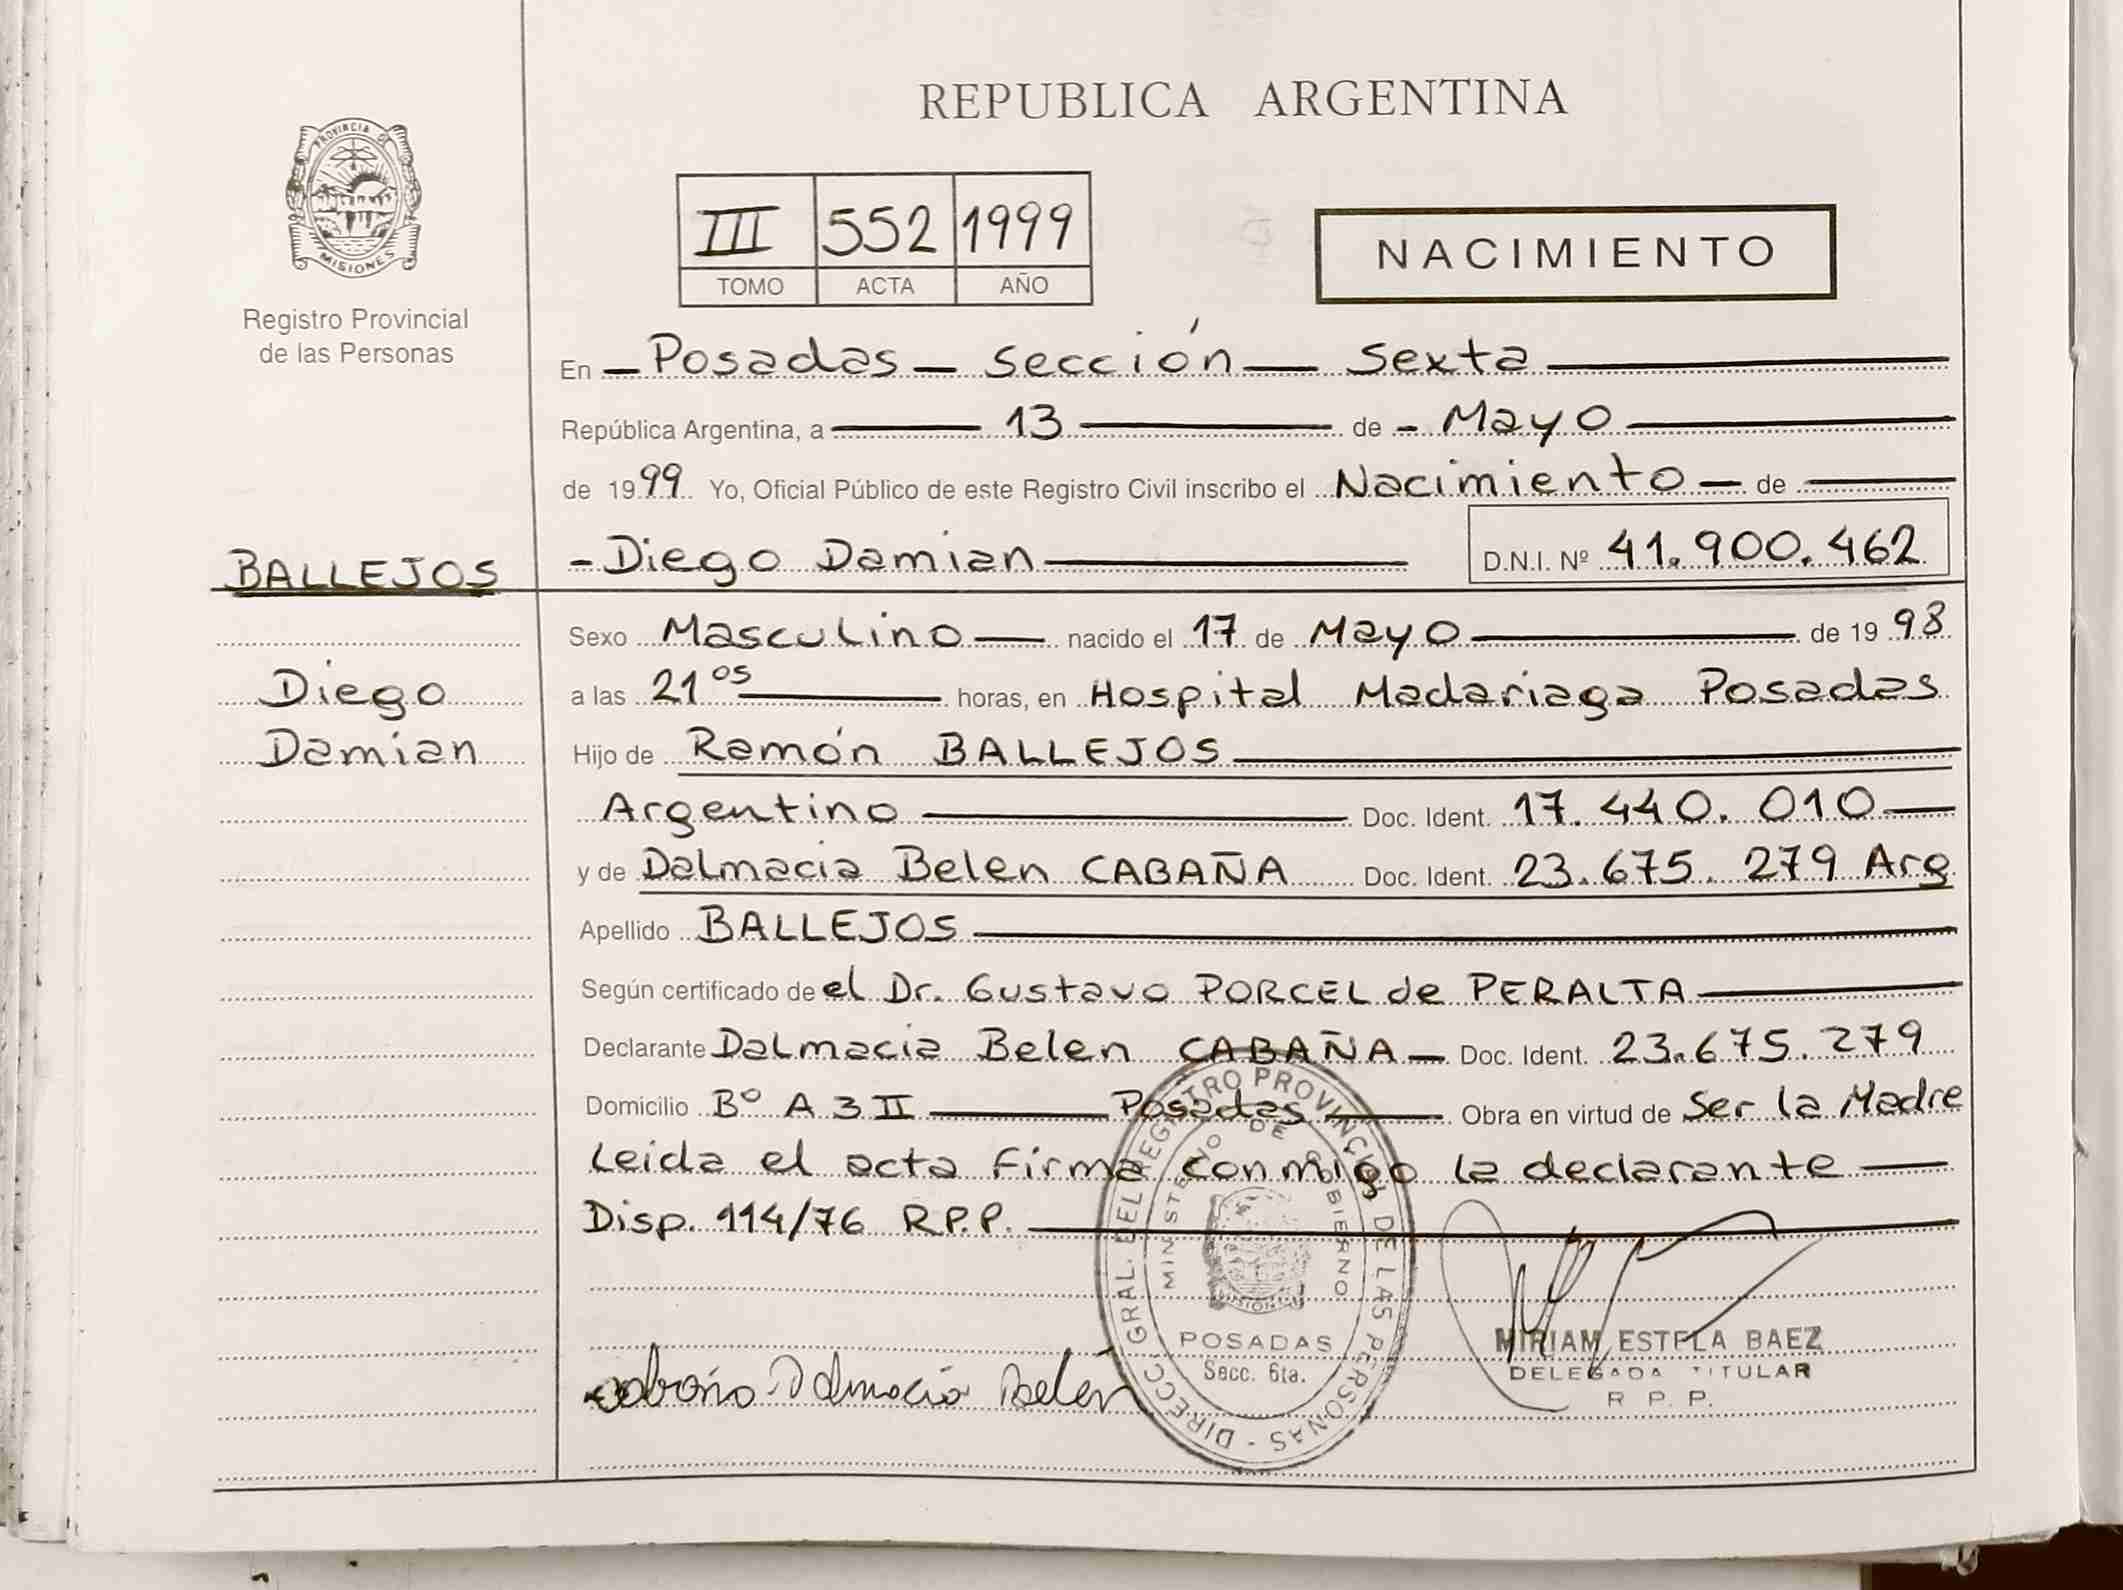 REPUBLICA ARGENTINA
PROVINCIA DE
MISIONES
Registro Provincial
de las Personas
III 552 1999
TOMO ACTA AÑO
NACIMIENTO
En - Posadas - sección - Sexta
República Argentina, a 13 de - Mayo
de 1999 Yo, Oficial Público de este Registro Civil inscribo el Nacimiento - de
BALLEJOS
- Diego Damian D.N.I. Nº 41.900.462
Sexo Masculino nacido el 17 de Mayo de 1998
Diego
a las 21 05 horas, en Hospital Madariaga Posadas
Damian
Hijo de Ramón BALLEJOS
Argentino Doc. Ident. 17.440.010
y de Dalmacia Belen CABAÑA Doc. Ident. 23.675.279 Arg
Apellido BALLEJOS
Según certificado de el Dr. Gustavo PORCEL de PERALTA
Declarante Dalmacia Belen CABAÑA - Doc. Ident. 23.675.279
Domicilio Bº A 3 II Posadas Obra en virtud de Ser la Madre
Leida el acta firma conmigo la declarante
Disp. 114/76 R.P.P.
DIRECC. GRAL. DEL REGISTRO PROVINCIAL DE LAS PERSONAS -
MINISTERIO DE GOBIERNO
MISIONES
POSADAS
Secc. 6ta.
MIRIAM ESTELA BAEZ
DELEGADA TITULAR
R. P. P.
Cabaña Dalmacia Belén